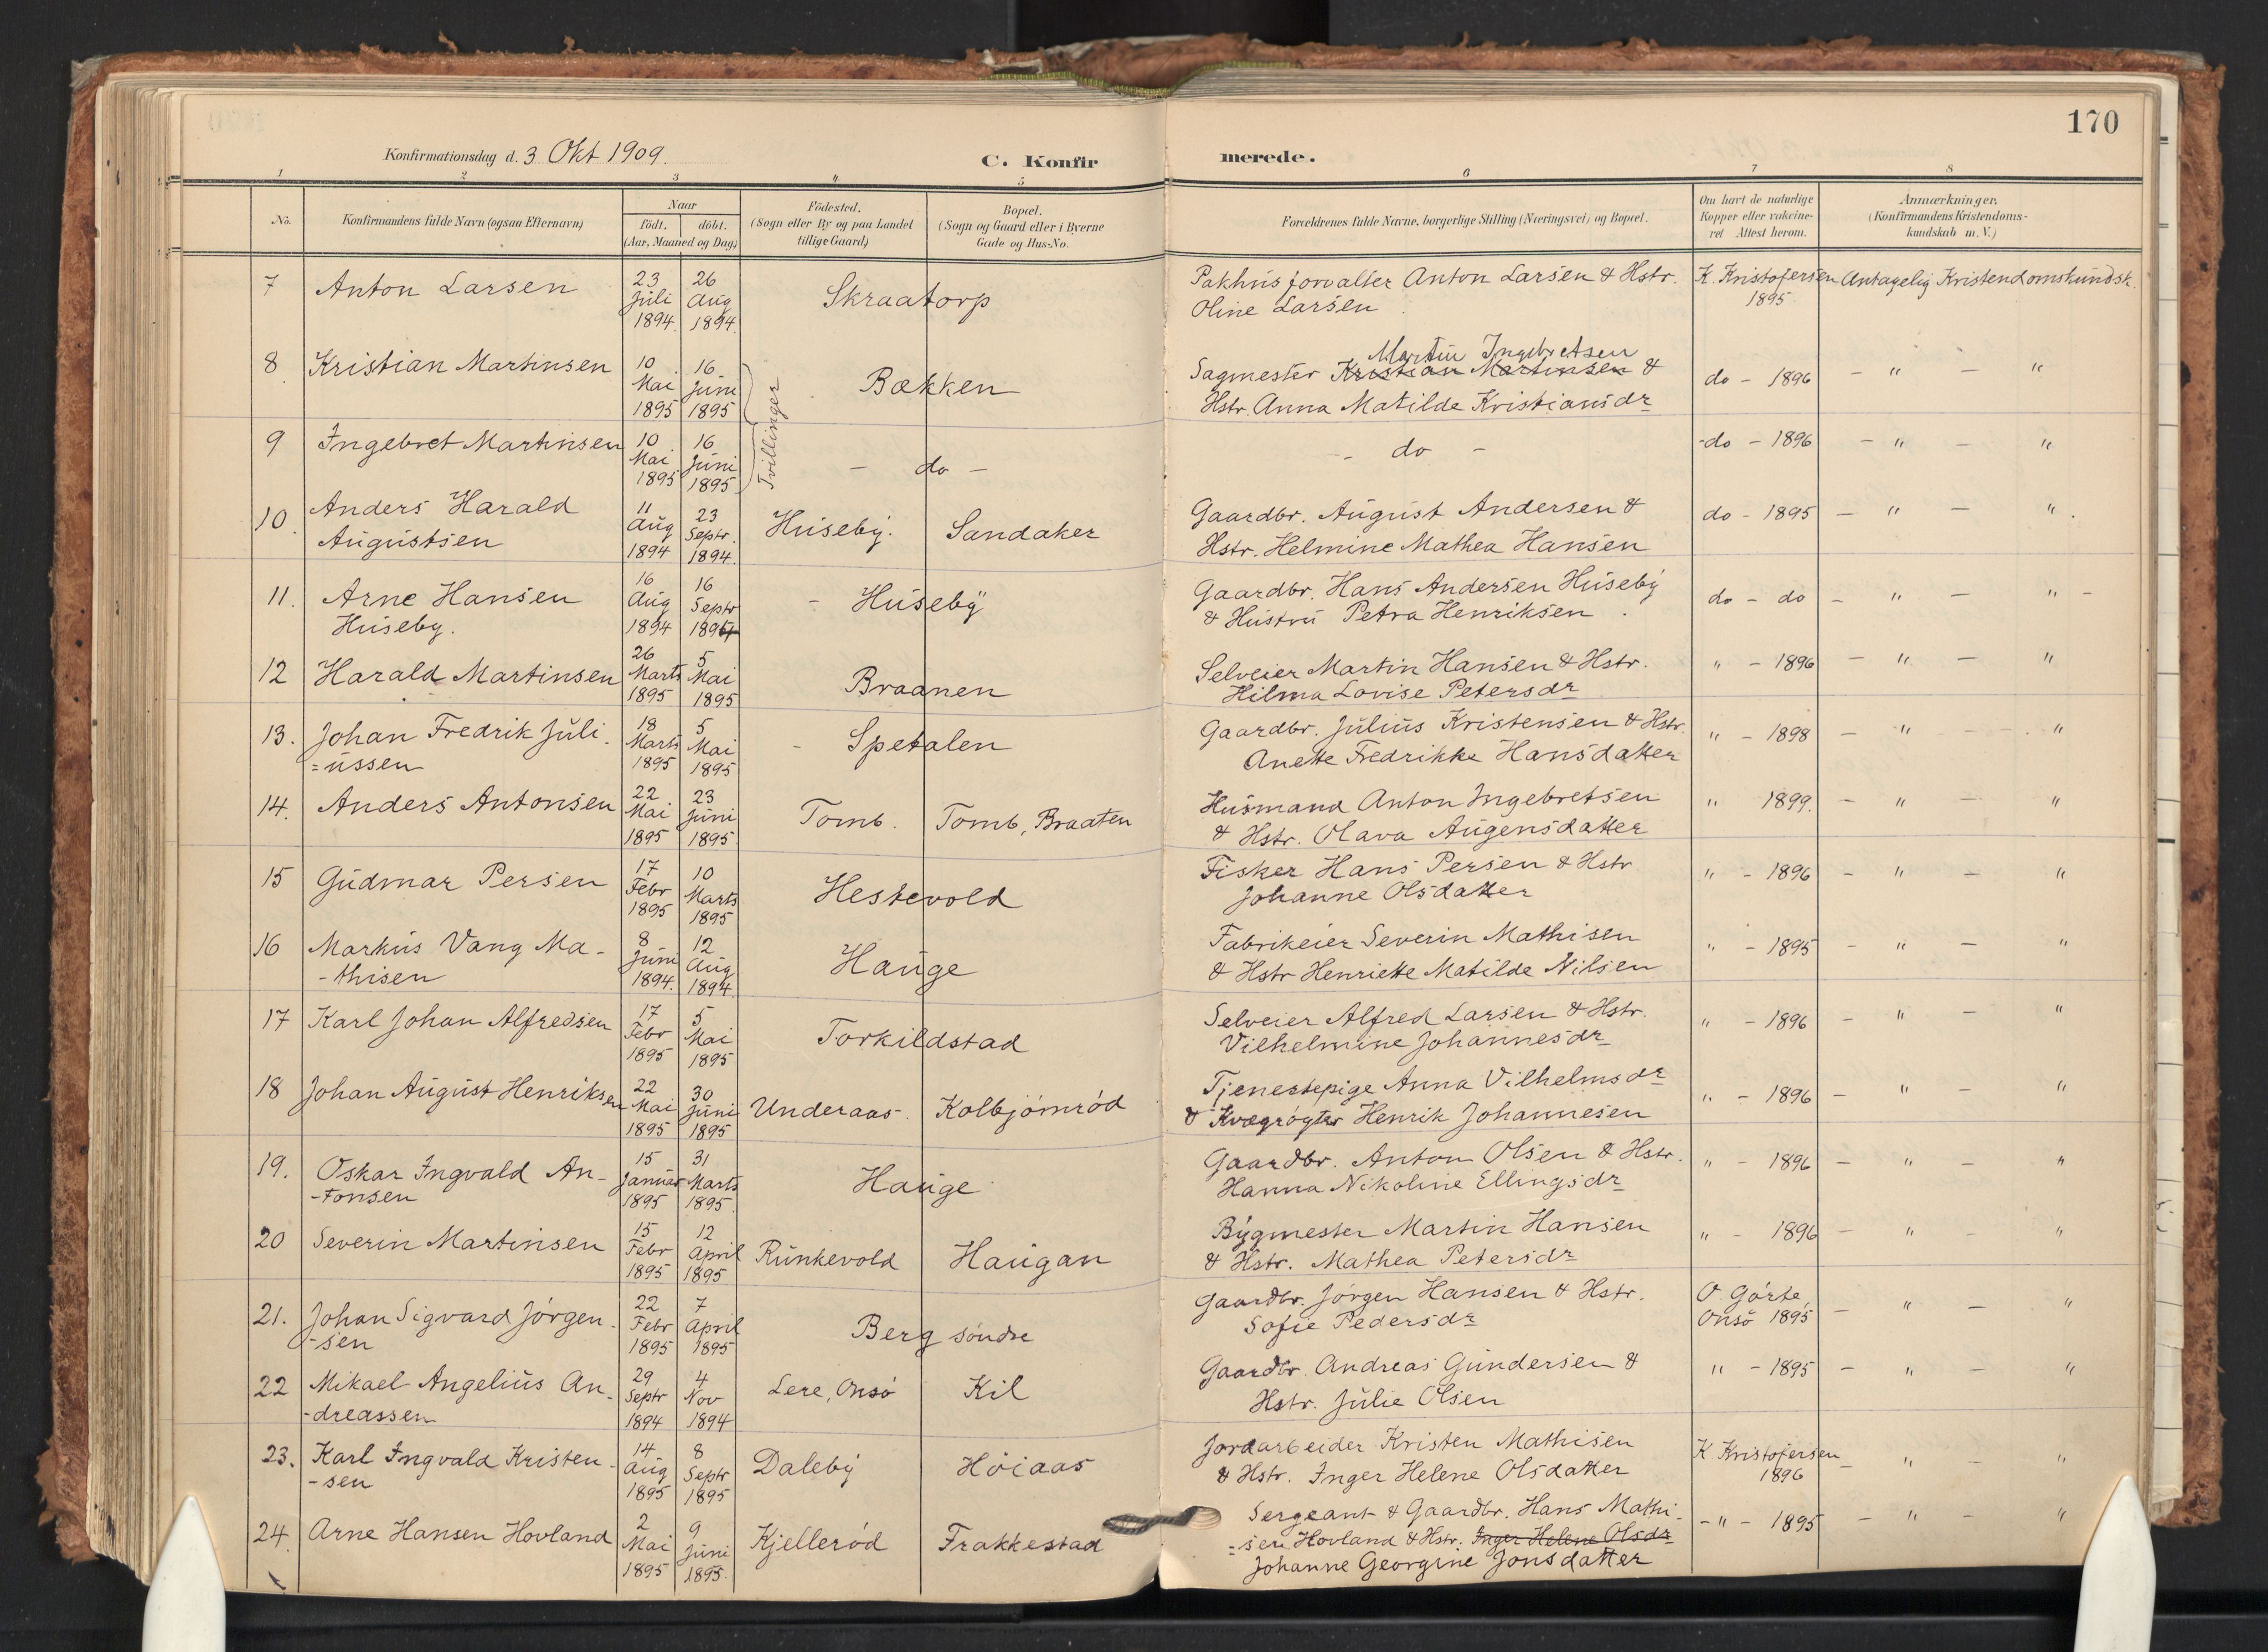 170
Konfirmationsdag d. 3 Okt 1909.
C. Konfirmerede.
1 2 3 4 5 6 7 8
No. Konfirmandens fulde Navn (ogsaa Efternavn) Naar födt. döbt. (Aar, Maaned og Dag) Födested. (Sogn eller By og paa Landet tillige Gaard) Bopæl. (Sogn og Gaard eller i Byerne Gade og Hus-No. Forældrenes fulde Navne, borgerlige Stilling (Næringsvei) og Bopæl. Om havt de naturlige Kopper eller vakcineret Attest herom. Anmærkninger. (Konfirmandens Kristendomskundskab m. V.)
7 Anton Larsen 23 Juli 1894. 26 Aug 1894. Skraatorp Pakhusforvalter Anton Larsen & Hstr. Oline Larsen K. Kristofersen 1895 Antagelig Kristendomskundsk.
8 Kristian Martinsen 10 Mai 1895 16 Juni 1895 Tvillinger Bækken Sagmester Kristian Martinsen Martin Ingebretsen & Hstr. Anna Matilde Kristiansdr do - 1896 - " - "
9 Ingebret Martinsen 10 Mai 1895 16 Juni 1895 - do - - do - -do - 1896 - " - "
10. Anders Harald Augustsen 11 Aug 1894 23 Septr. 1894. Huseby. Sandaker Gaardbr. August Andersen & Hstr. Helmine Mathea Hansen do - 1895 - " - ".
11. Arne Hansen Huseby. 16 Aug 1894 16 Septr 1894 - Huseby Gaardbr. Hans Andersen Huseby & Hustru Petra Henriksen. do - do - " - " -
12 Harald Martinsen 26 Marts 1895 5 Mai 1895 Braanen Selveier Martin Hansen & Hstr. Hilma Lovise Petersdr " - 1896 - " - "
13. Johan Fredrik Juli-=ussen 18 Marts 1895 5 Mai 1895 - Spetalen Gaardbr. Julius Kristensen & Hstr. Anette Fredrikke Hansdatter " - 1898 - " - "
14. Anders Antonsen 22 Mai 1895 23 Juni 1895 Tomb. Tomb, Braaten Husmand Anton Ingebretsen & Hstr. Olava Augensdatter " 1899. - " - "
15 Gudmar Persen 17 Febr 1895 10 Marts 1895 Hestevold Fisker Hans Persen & Hstr Johanne Olsdatter " - 1896 - " - "
16 Markus Vang Ma--thisen 8 Juni 1894. 12 Aug 1894. Hauge Fabrikeier Severin Mathisen & Hstr Henriette Matilde Nilsen " - 1895 - " - "
17 Karl Johan Alfredsen 17 Febr 1895 5 Mai 1895 Torkildstad Selveier Alfred Larsen & Hstr. Vilhelmine Johannesdr " - 1896 - " - "
18 Johan August Henriksen 22 Mai 1895 30 Juni 1895 Underaas. Kolbjörnröd Tjenestepige Anna Vilhelmsdr & Kvægrögter Henrik Johannesen " - 1896 - " - "
19. Oskar Ingvald An--tonsen 15 Januar 1895 31 Marts 1895. Hauge Gaardbr. Anton Olsen & Hstr. Hanna Nikoline Ellingsdr " - 1896 - " - "
20 Severin Martinsen 15 Febr 1895 12 April 1895 Runkevold Haugan Bygmester Martin Hansen & Hstr. Mathea Petersdr " - 1896 - " - "
21. Johan Sigvard Jörgen--sen 22 Febr 1895 7 April 1895 Berg söndre Gaardbr. Jörgen Hansen & Hstr. Sofie Pedersdr O. Gårte, Onsö 1895 - " - "
22 Mikael Angelius An--dreassen 29 Septr 1894 4 Nov 1894 Lere, Onsö Kil Gaardbr. Andreas Gundersen & Hstr. Julie Olsen " - 1895 - " - "
23. Karl Ingvald Kristen--sen 14 Aug 1895 8 Septr 1895 Daleby Höiaas Jordarbeider Kristen Mathisen & Hstr. Inger Helene Olsdatter K Kristofersen 1896 - " - "
24. Arne Hansen Hovland 2 Mai 1895 9 Juni 1895. Kjelleröd Frakkestad Sergeant & Gaardbr. Hans Mathi-=sen Hovland & Hstr. Inger Helene Olsdr Johanne Georgine Jonsdatter - " - 1895 - " - "